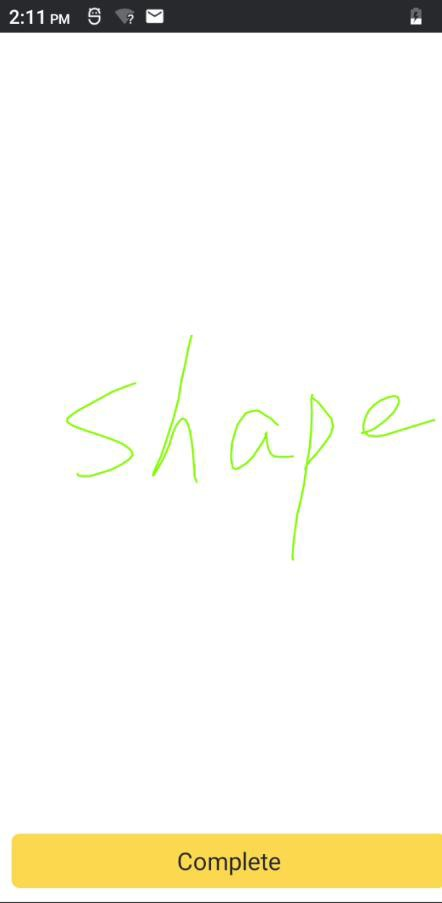 2:11 PM
shape
Complete